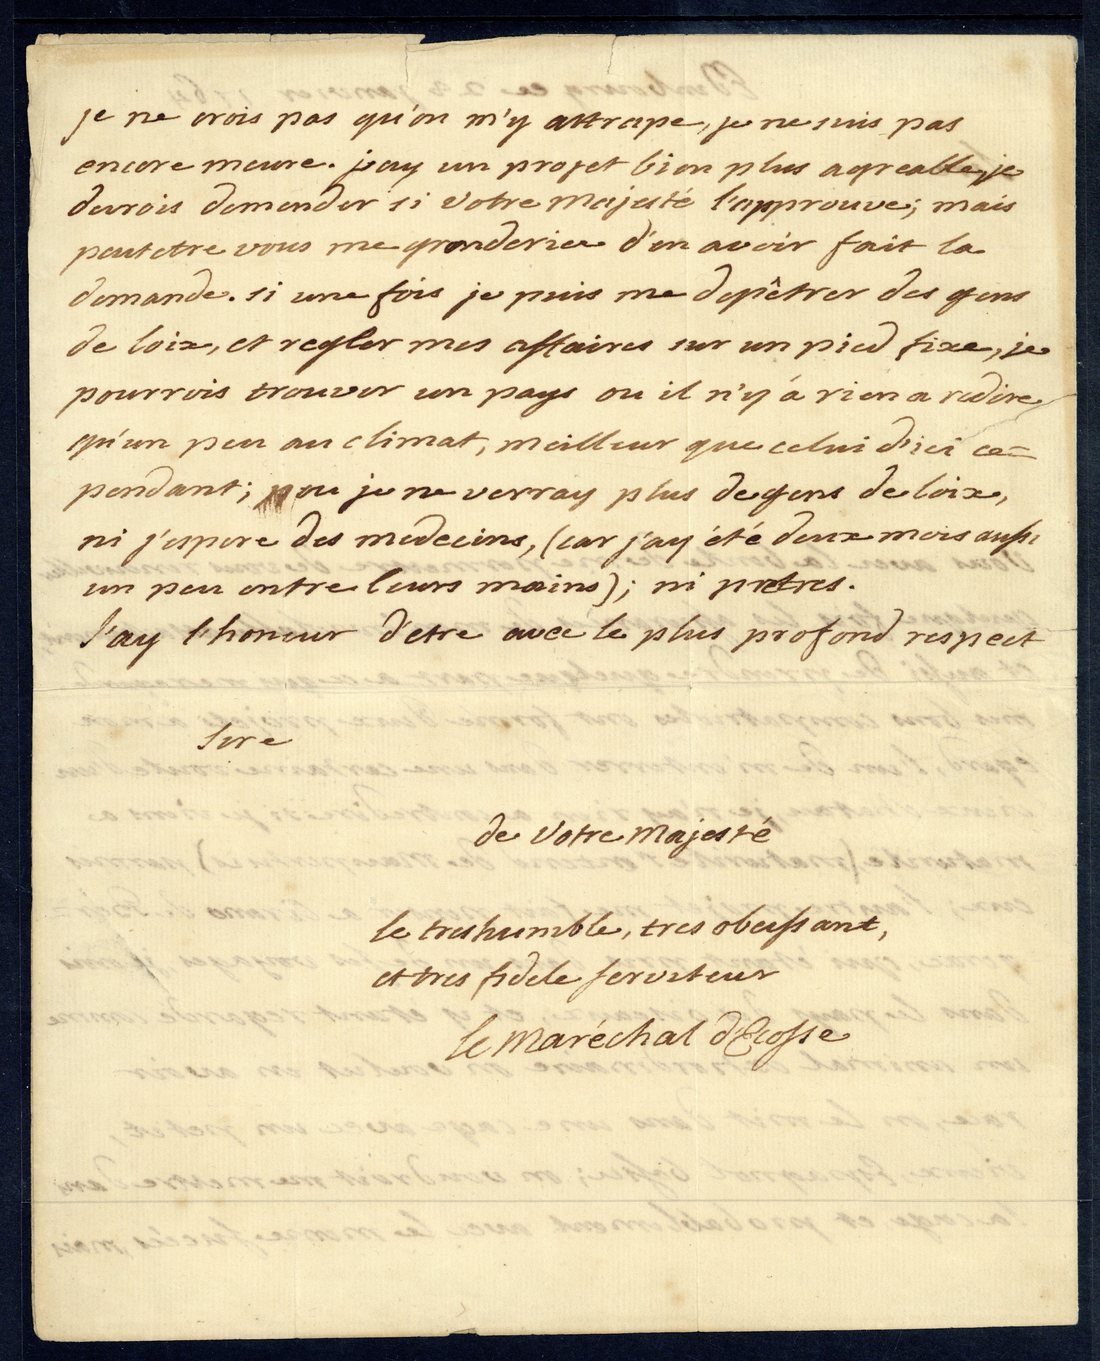 je ne crois pas qu'on m'y attrape, je ne suis pas
encore meure. j'ay un projet bien plus agreable, je
devrois demender si Votre Majesté l'approuve; mais
peutetre vous me gronderiez d'en avoir fait la
demande. si une fois je puis me depêtrer des gens
de loix, et regler mes affaires sur un pied fixe, je
pourrois trouver un pays ou il n'y á rien a redire
qu'un peu au climat, meilleur que celui d'ici ce=
pendant; ou je ne verray plus de gens de loix,
ni j'espere des medecins, (car j'ay été deux mois aussi
un peu entre leurs mains); ni pretres.
J'ay l'honeur d'etre avec le plus profond respect
Sire
de Votre Majesté
le treshumble, tres obeissant,
et tres fidele serviteur
le Maréchal d'Ecosse